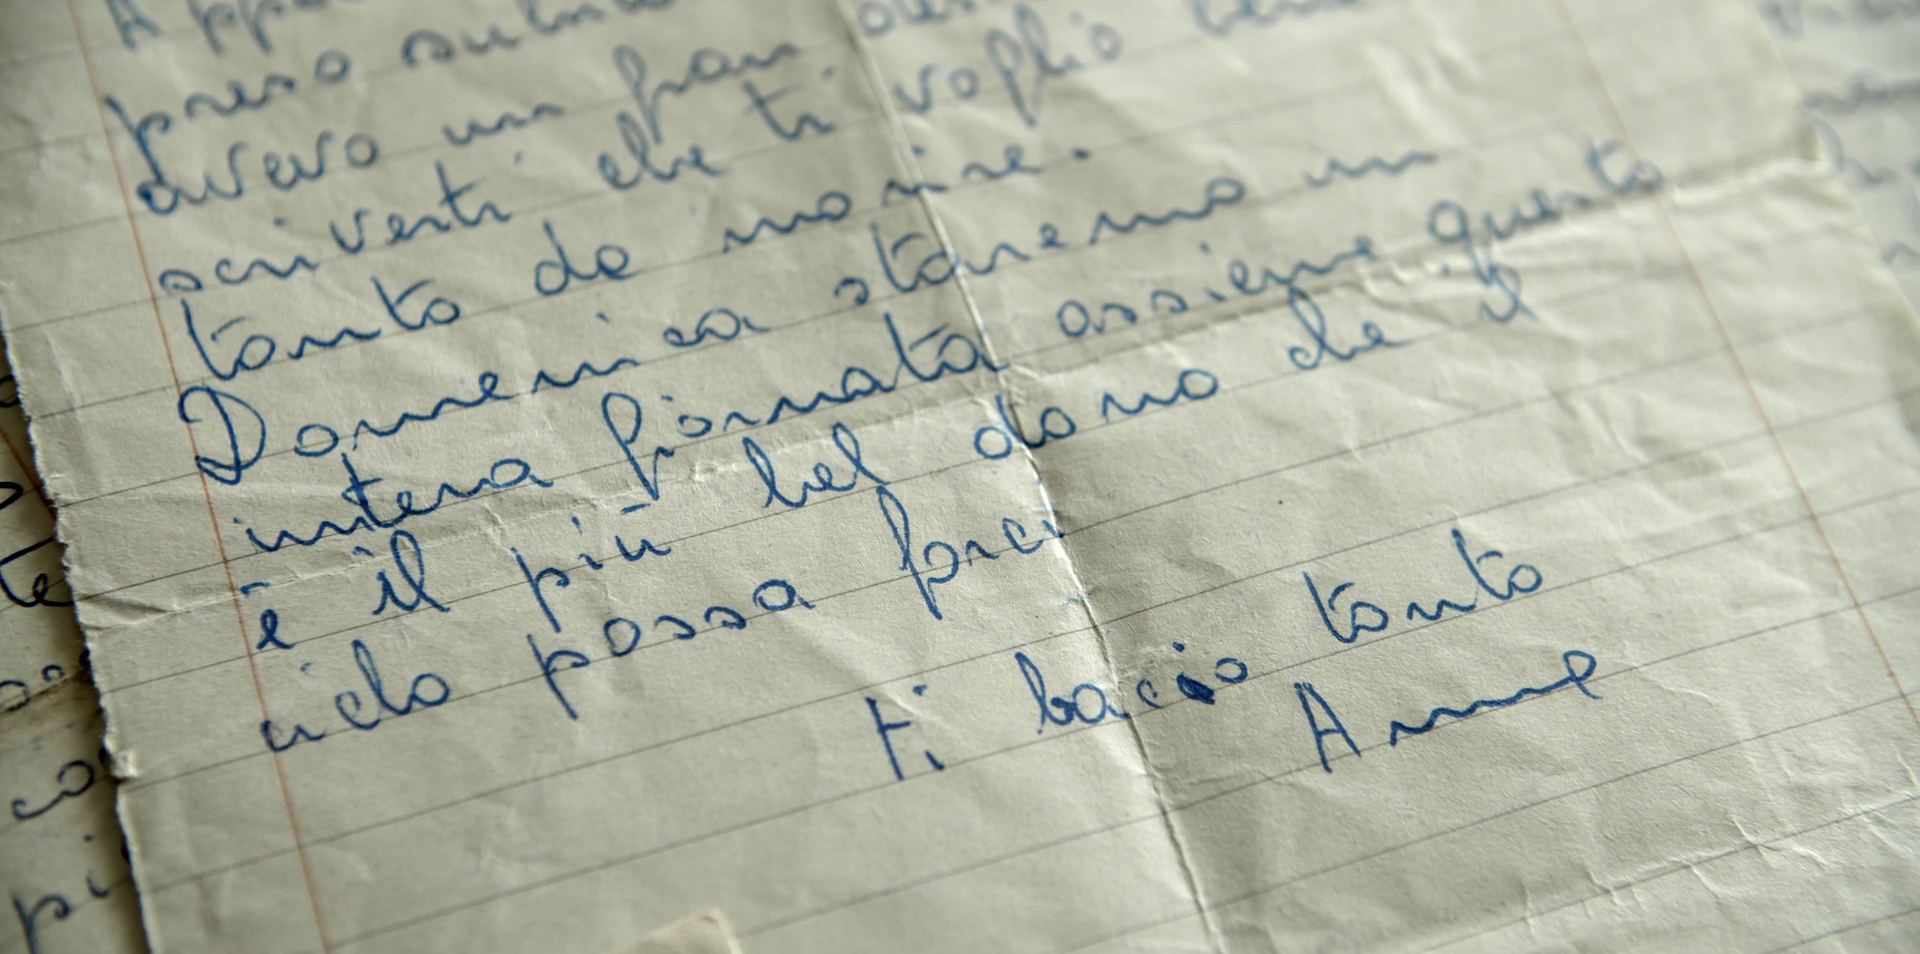 preso subito
avevo un gran
scriverti che ti voglio bene
tanto da morire.
Domenica staremo un
intera giornata assieme questo
è il più bel dono che il
cielo possa farci
ti bacio tanto
Anna
te
co
pi